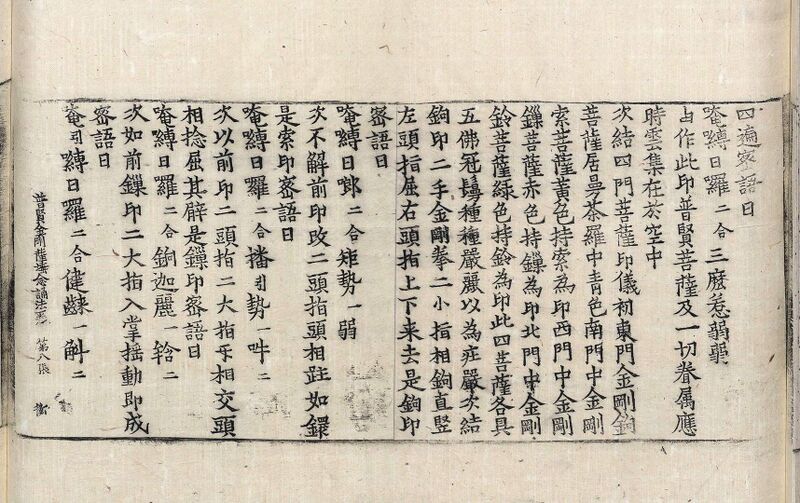 四遍密語曰
唵縛日羅二合三麼惹弱藥
由作此印普賢菩薩及一切眷属應
時雲集在於空中
次結四門菩薩印儀初東門金剛鉤
菩薩居曼荼羅中青色南門中金剛
索菩薩黃色持索為印西門中金剛
鏁菩薩赤色持鏁為印北門中金剛
鈴菩薩綠色持鈴為印此四菩薩各具
五佛冠鬘種種嚴麗以為莊嚴次結
鉤印二手金剛拳二小指相鉤直竪
左頭指屈右頭指上下来去是鉤印
密語曰
唵縛日郎二合矩勢一弱
次不解前印改二頭指頭相跓如鐶
是索印密語曰
唵縛日羅二合播引勢一吽二
次以前印二頭指二大指㸦相交頭
相捻屈其臂是鏁印密語曰
唵縛日羅二合餉迦麗一鈴二
次如前鏁印二大指入掌搖動即成
密語曰
唵引縛日羅二合健一斛二
普賢金剛薩埵念誦法 第八張